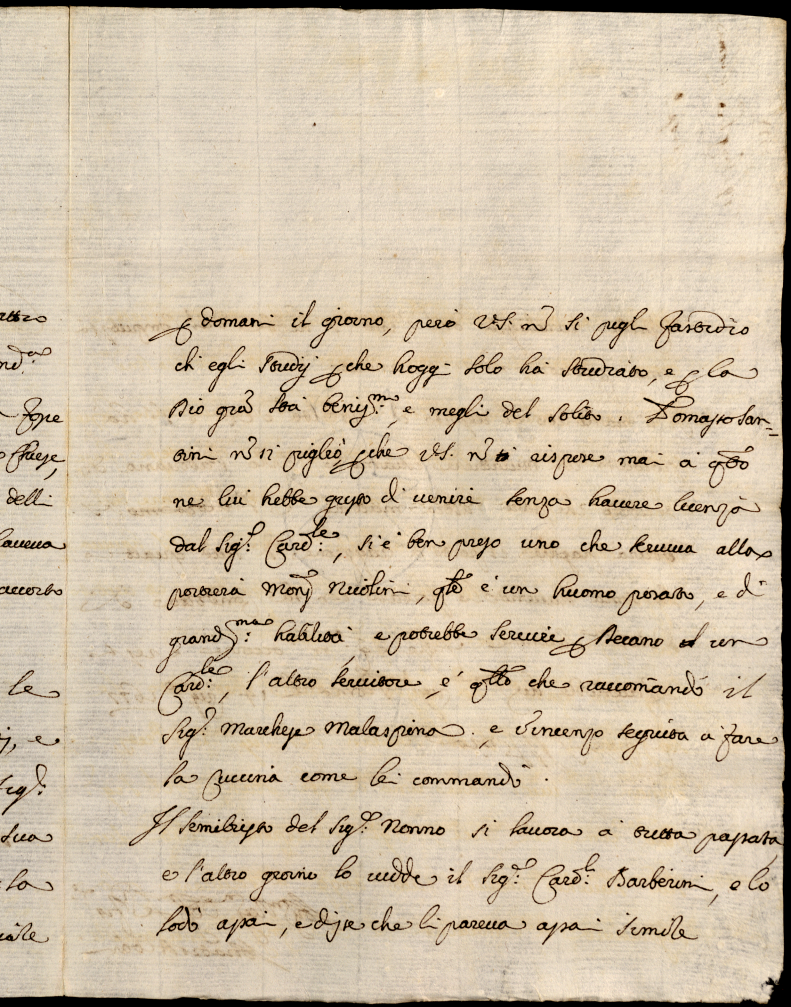 delli
haueua
le
e
Sig.r
sua
la
p domani il giorno, però V.S. nõ si pigli fastidio
ch'egli studij p che hoggi solo hà studiato, e p la
Dio gra stà beniss.mo, e megli del solito. Tomasso San-
tini nõ si pigliò, p che V.S. nõ rispose mai à q.to
ne lui hebbe gusto di uenire senza hauere licenza
dal Sig.r Card.le, si è ben preso uno che seruiua alla
Mons. Nicolini, q.le è un huomo posato, e di
grand.ma habilità e potrebbe seruire p Decano d'un
Card.le, l'altro seruitore, è q.llo che raccomandò il
Sig.r Marchese Malaspina. e Vincenzo seguita à fare
la Cucina come lei commandò.
Il semibusto del Sig.r Nonno si lauora à tutta passata
e l'altro giorno lo uidde il Sig.r Card.l Barberini, e lo
lodò assai, e disse che li pareua assai simile